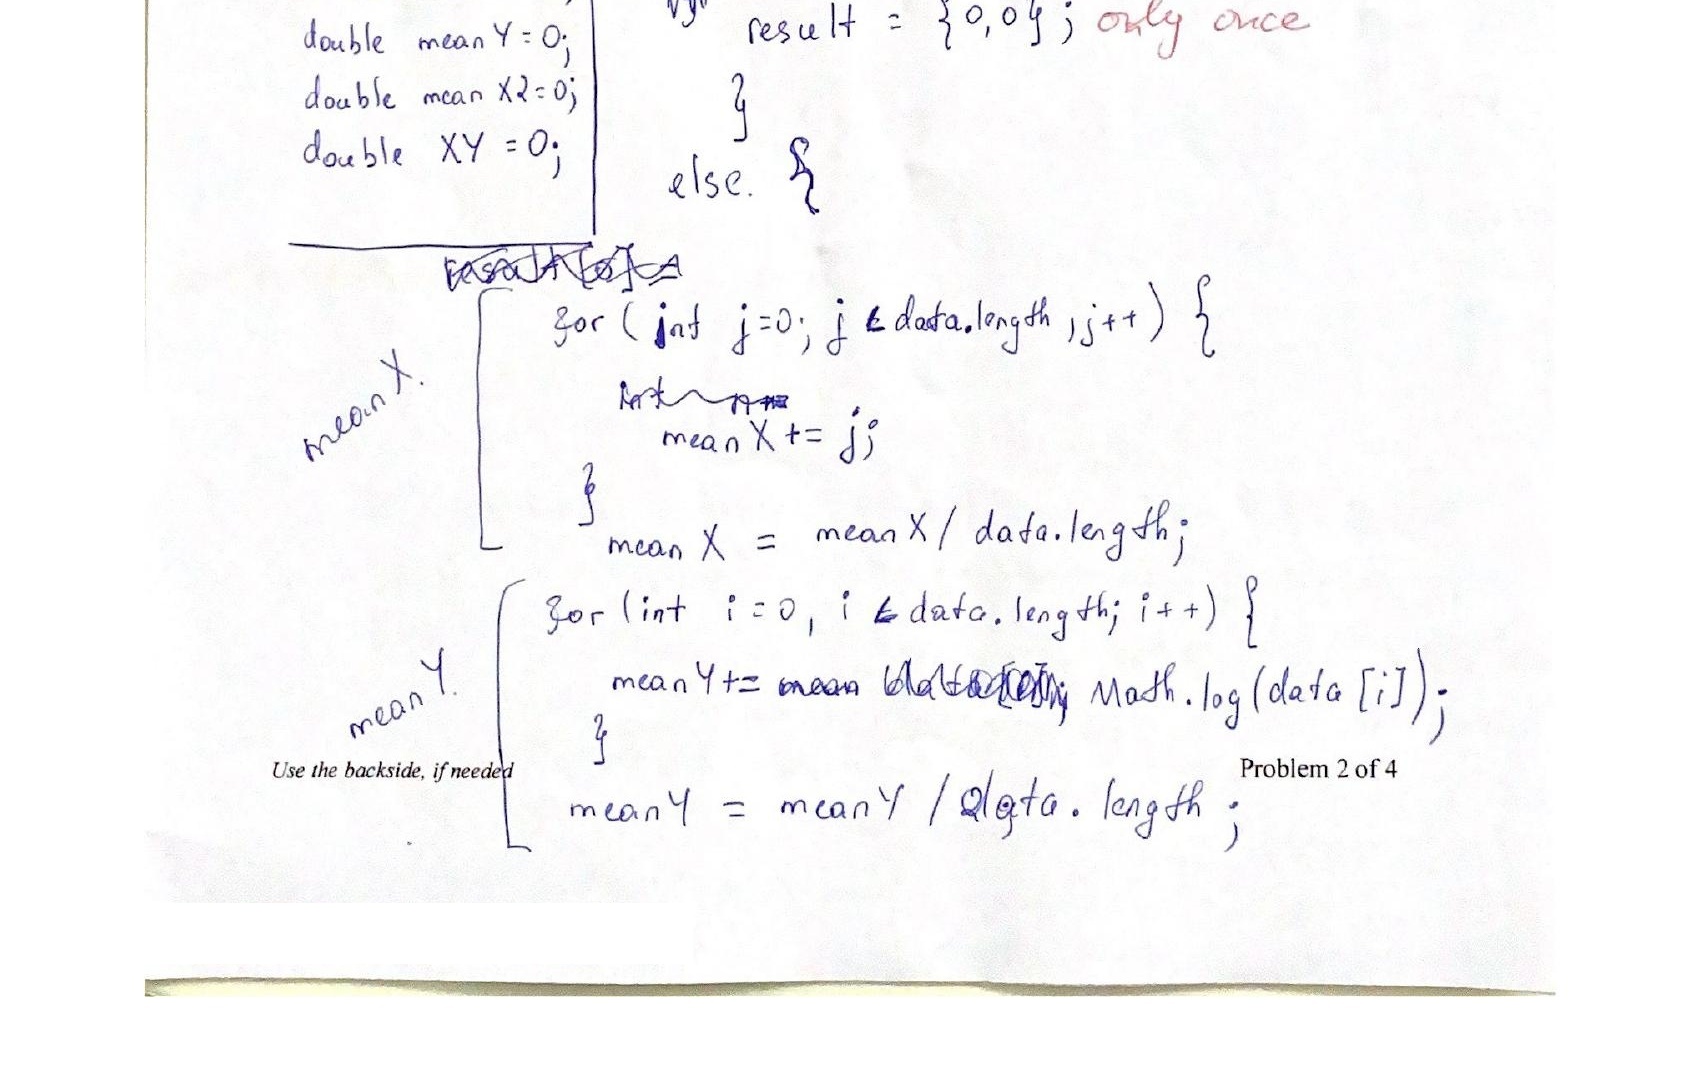 double meanY = 0;
double mean X2 = 0;
double XY = 0;
result = {0,0}; only once
}
else. {
for ( int j=0; j < data.length ; j++ ) {
mean X += j;
}
mean X = mean X / data.length;
mean X.
for (int i = 0, i < data.length; i++) {
mean Y += Math.log(data [i]);
}
mean Y = mean Y / data. length ;
mean Y.
Use the backside, if needed
Problem 2 of 4